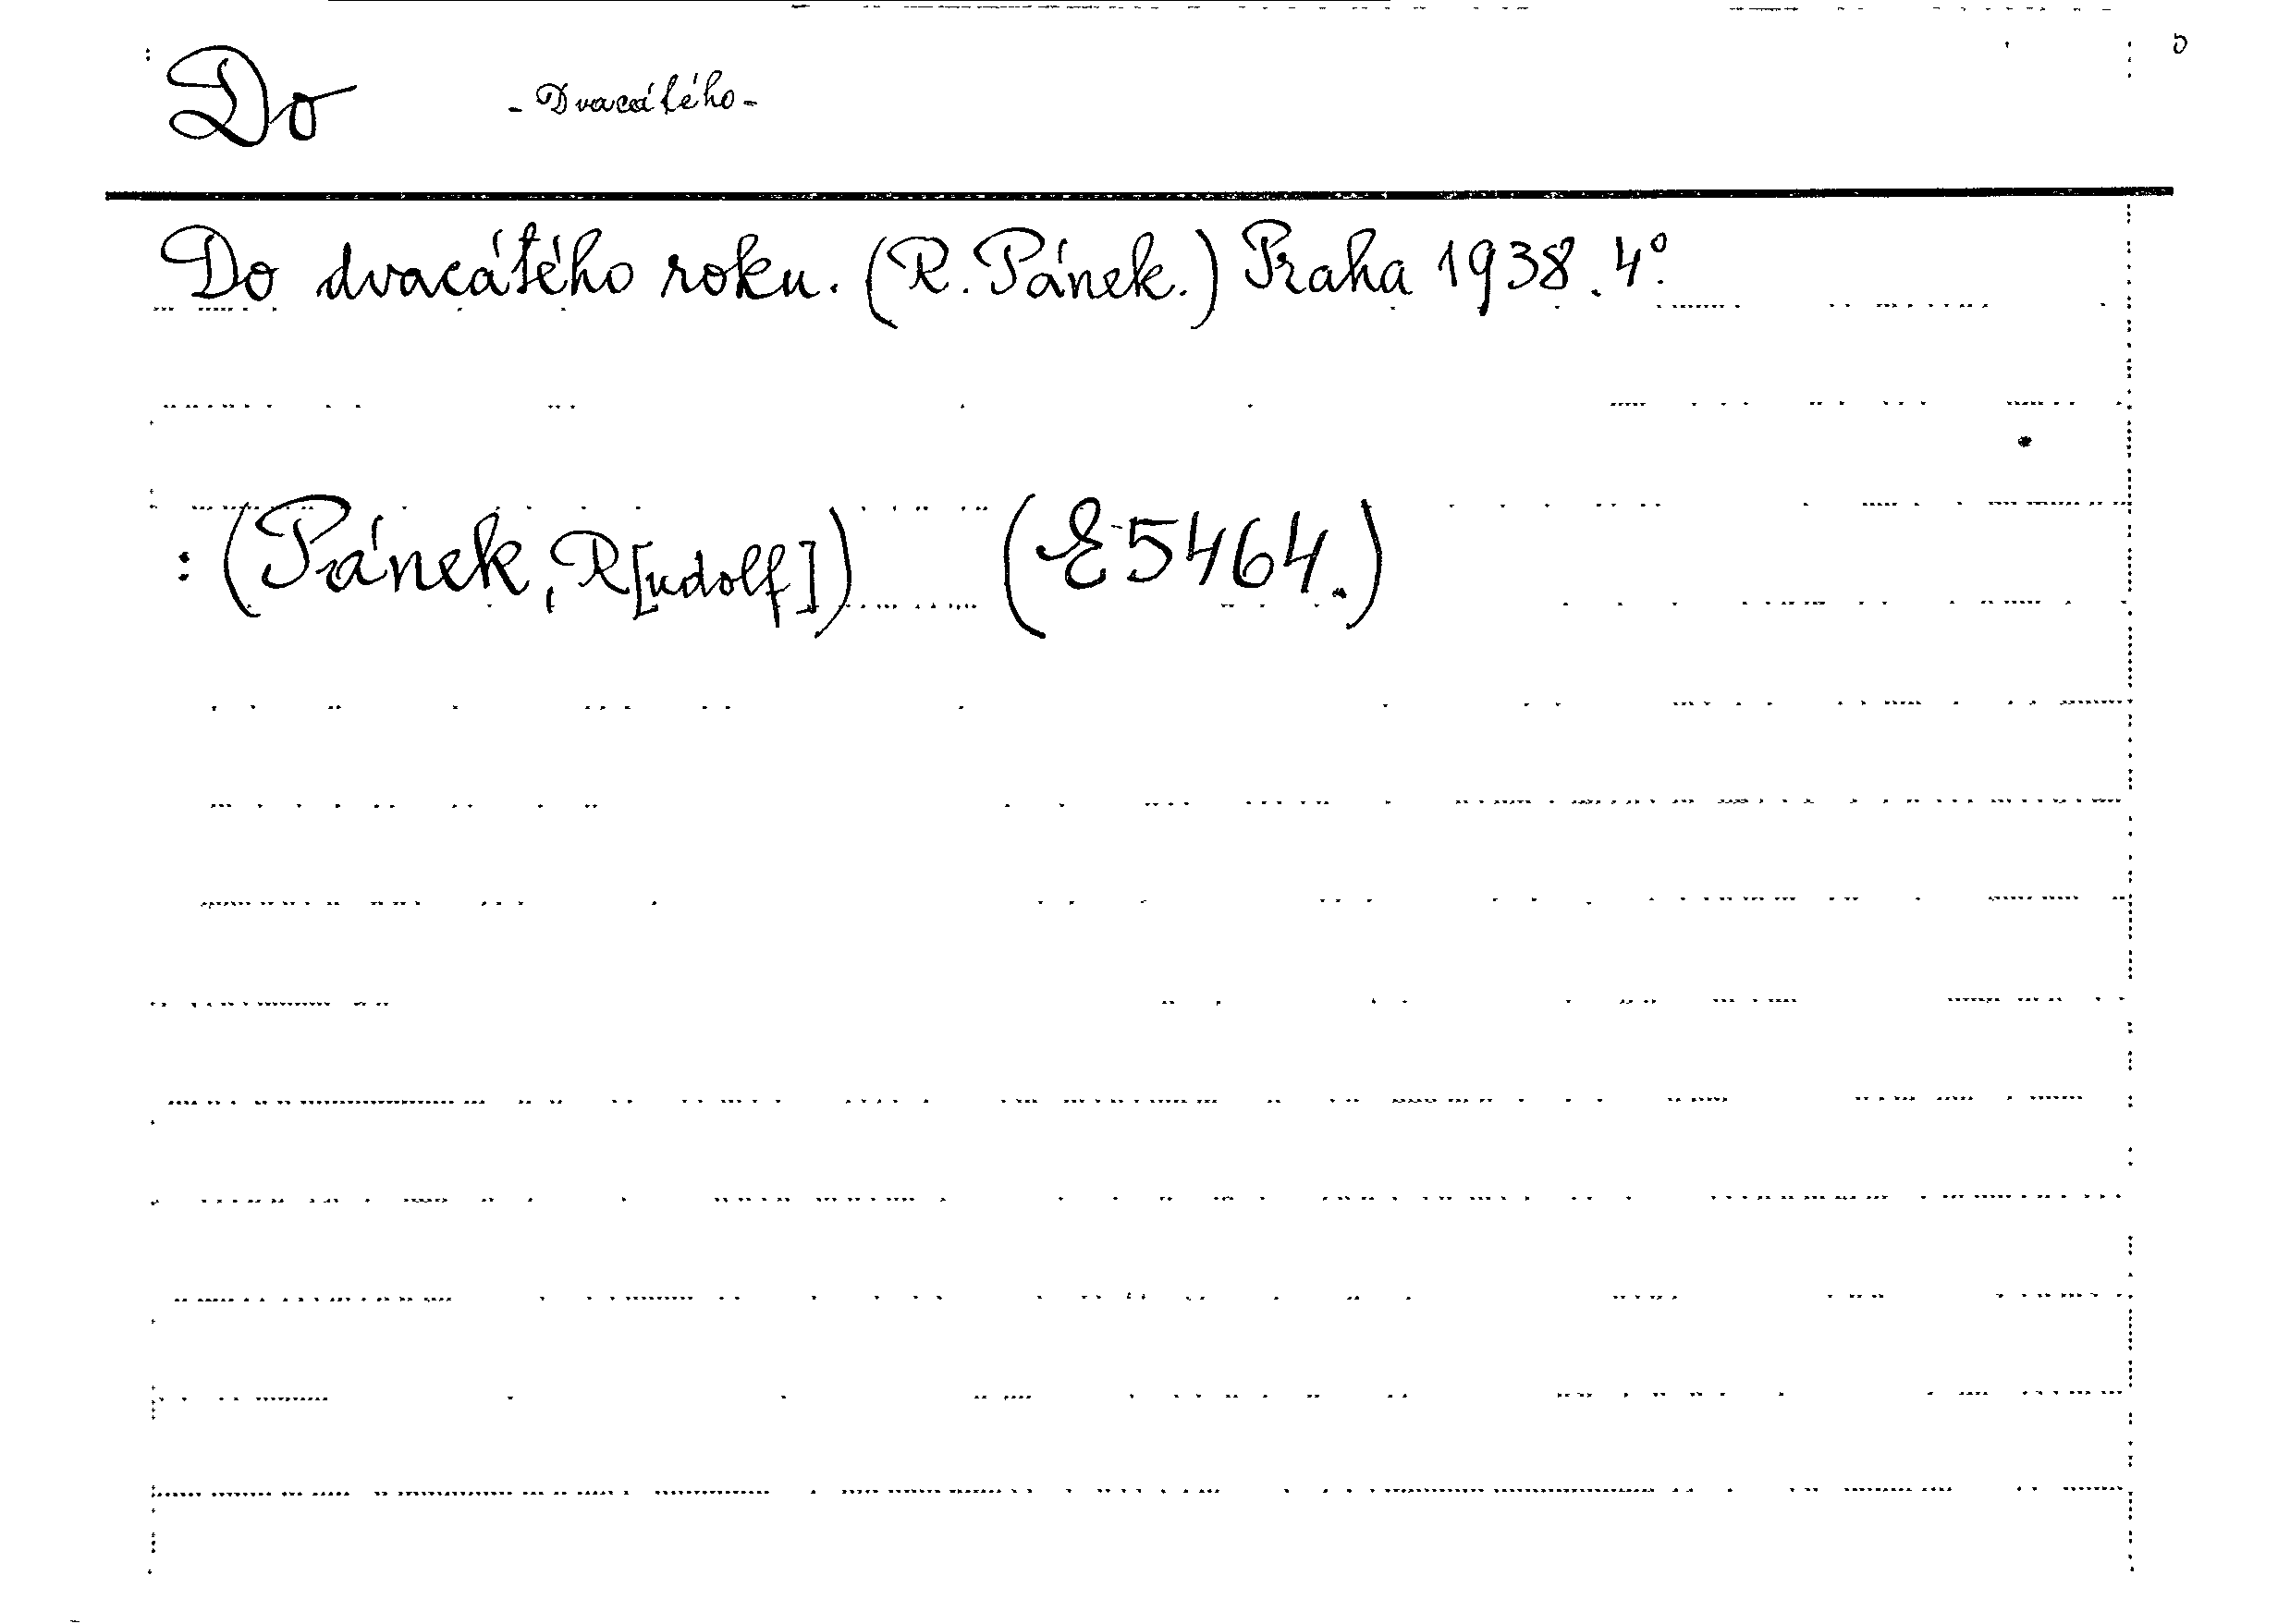 Do - Dvacátého -
Do dvacátého roku. (R. Pánek.) Praha 1938. 4°.
: (Pánek, R[udolf]) (E 5464.)